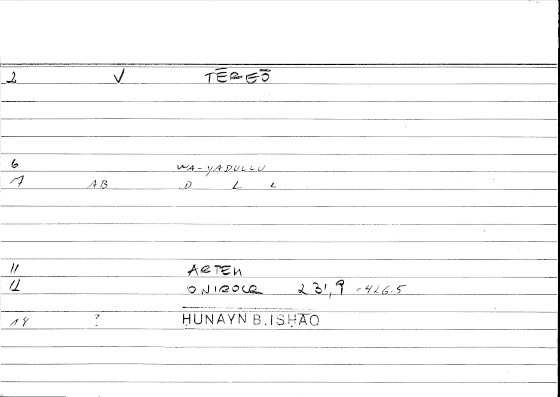 2 V TĒREŌ
6 WA-YADULLU
7 AB D L L
11 ARTEM
12 ONIROCR 231,9 -426.5
14 ? ḤUNAYN B.ISḤĀQ